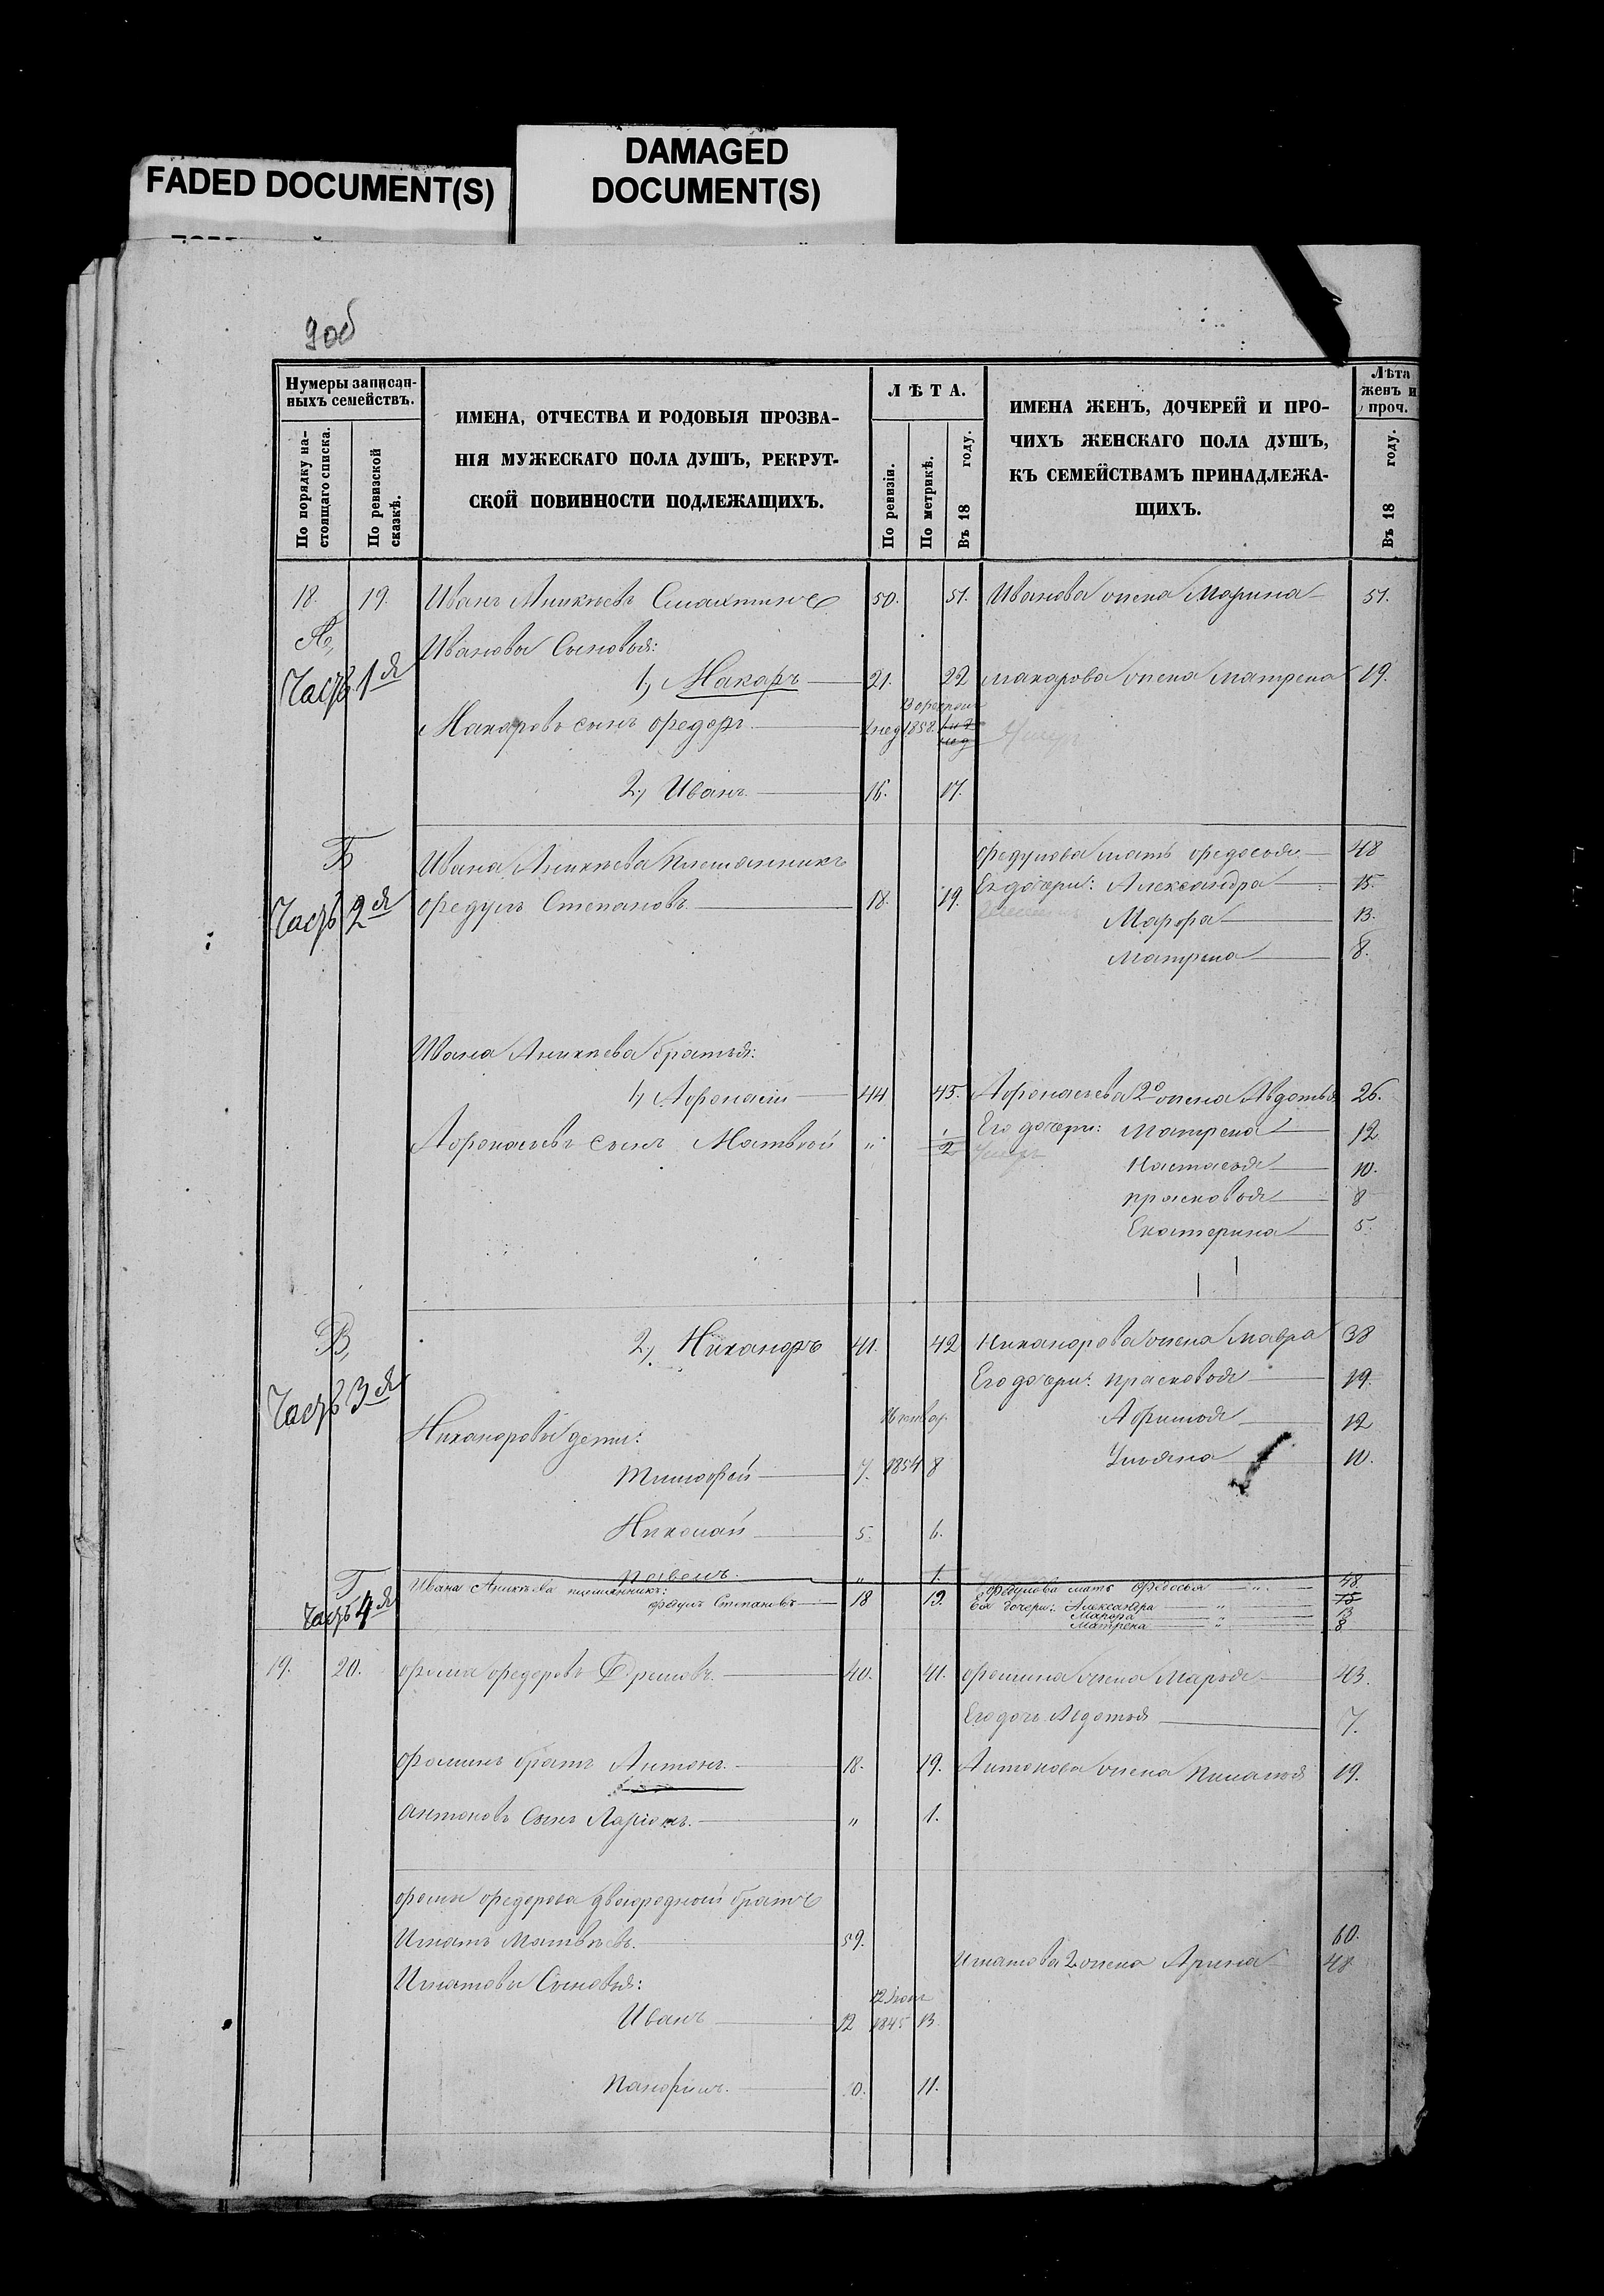 FADED DOCUMENT(S)
DAMAGED
DOCUMENT(S)
9 об
Нумеры записан-
ныхъ семействъ.
По порядку на-
стоящаго списка.
По ревизской
сказкѣ.
ИМЕНА, ОТЧЕСТВА И РОДОВЫЯ ПРОЗВА-
НІЯ МУЖЕСКАГО ПОЛА ДУШЪ, РЕКРУТ-
СКОЙ ПОВИННОСТИ ПОДЛЕЖАЩИХЪ.
ЛѢТА.
По ревизіи.
По метрикѣ.
Въ 18 году.
ИМЕНА ЖЕНЪ, ДОЧЕРЕЙ И ПРО-
ЧИХЪ ЖЕНСКАГО ПОЛА ДУШЪ,
КЪ СЕМЕЙСТВАМЪ ПРИНАДЛЕЖА-
ЩИХЪ.
Лѣта
женъ и
проч.
Въ 18 году.
18. 19. Иванъ Аникѣевъ 50. 51. Иванова жена Марина 51.
А,
Ивановы Сыновья:
Часть 1я
1, Макаръ 21. 22 Макарова жена Матрена 19.
Макаровъ сынъ Федоръ нед 1858. нед Умеръ
2, Иванъ 16. 17.
Б
Ивана Аникѣева Племянникъ Федулова мать Федосья 48
Часть 2я
Федулъ Степановъ 18. 19. Ея дочери: Александра 15.
Марфа 13.
Матрена 8.
Ивана Аникѣева братья:
1, Афонасій 44 45. Афонасьева 2я жена Авдотья 26.
Афонасьевъ сынъ Матвѣй " 1/2 Умеръ Его дочери: Матрена 12
Настасья 10.
Прасковья 8
Екатерина 5.
В,
2, Никаноръ 41. 42 Никанорова жена Мавра 38
Часть 3я
Его дочери: Прасковья 19.
Афимья 12
Никаноровы дети:
Ульяна 10.
Тимофей 7. 1854 8
Николай 5. 6.
Павелъ " 1.
Г
Часть 4я
Ивана Аникѣева племянникъ:
Федулъ Степановъ 18 19.
Федулова мать Федосья " 48
Ея дочери: Александра " 15
Марфа " 13
Матрена " 8
19. 20. Фома Федоровъ 40. 41. Фомина жена Марья 43.
Его дочь Авдотья 7.
Фоминъ братъ Антонъ. 18. 19. Антонова жена Пилагея 19.
Антоновъ Сынъ Ларіонъ. " 1.
Фомы Федорова двоюродной братъ
Игнатъ Матвѣевъ. 59. 60.
Игнатова 2 жена Арина 48
Игнатовы Сыновья:
Иванъ 12 1845 13
Панфилъ. 10. 11.